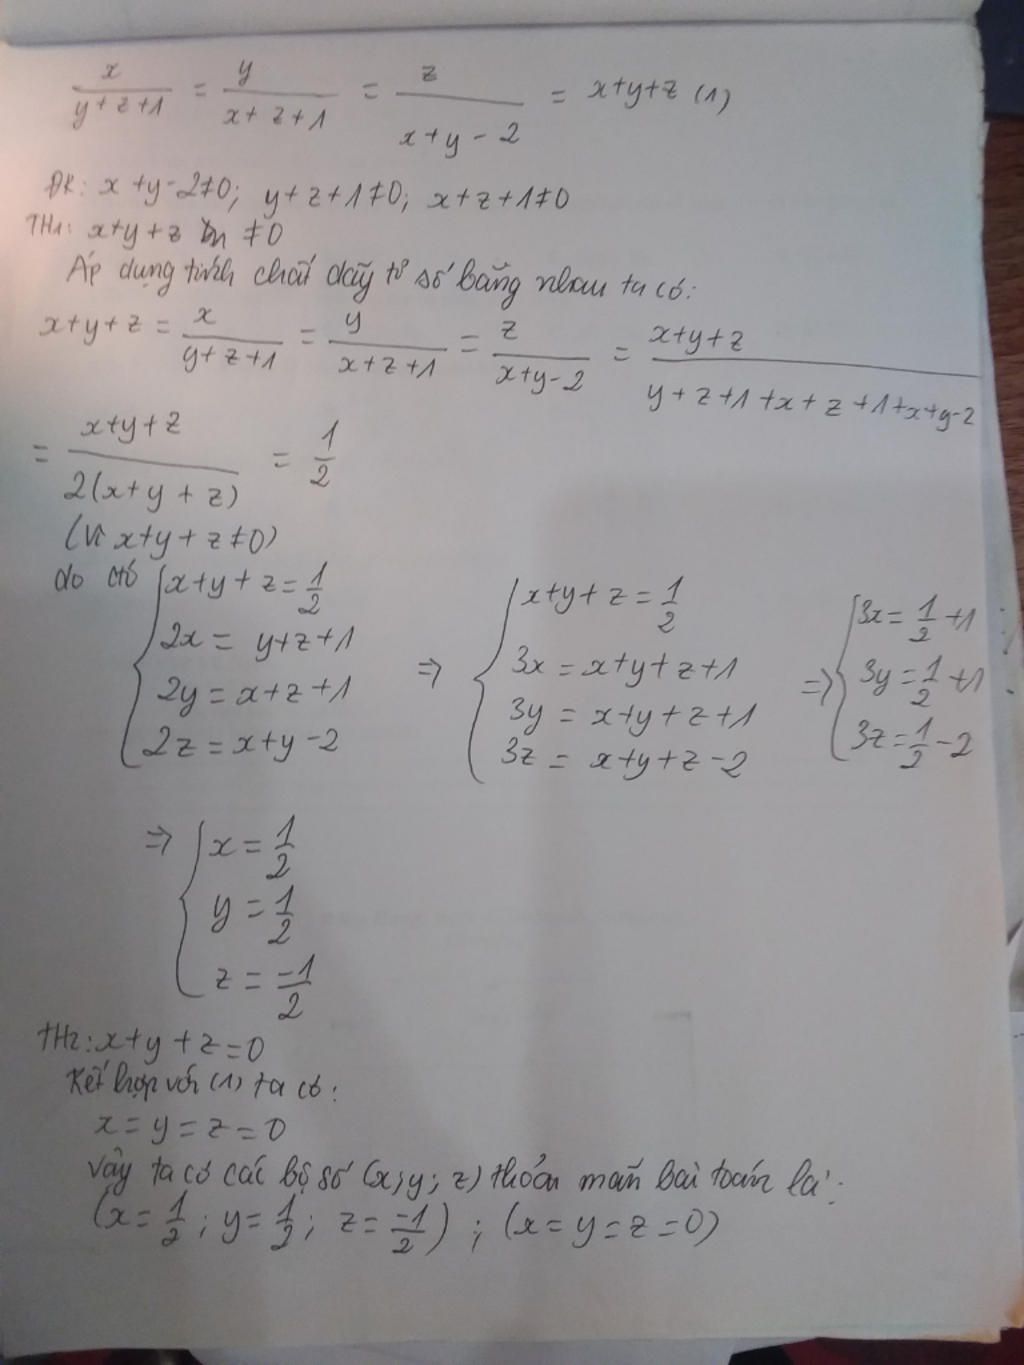 x/(y+z+1) = y/(x+z+1) = z/(x+y-2) = x+y+z (1)
ĐK: x+y-2≠0; y+z+1≠0; x+z+1≠0
TH1: x+y+z ≠0
Áp dụng tính chất dãy tỉ số bằng nhau ta có:
x+y+z = x/(y+z+1) = y/(x+z+1) = z/(x+y-2) = (x+y+z)/(y+z+1+x+z+1+x+y-2)
= (x+y+z)/(2(x+y+z)) = 1/2
(Vì x+y+z≠0)
do đó { x+y+z = 1/2 ⇒ { x+y+z = 1/2 ⇒ { 3x = 1/2 +1
2x = y+z+1 3x = x+y+z+1 3y = 1/2 +1
2y = x+z+1 3y = x+y+z+1 3z = 1/2 -2
2z = x+y-2 3z = x+y+z-2
⇒ { x = 1/2
y = 1/2
z = -1/2
TH2: x+y+z=0
Kết hợp với (1) ta có:
x=y=z=0
Vậy ta có các bộ số (x;y;z) thỏa mãn bài toán là:
(x=1/2; y=1/2; z=-1/2); (x=y=z=0)